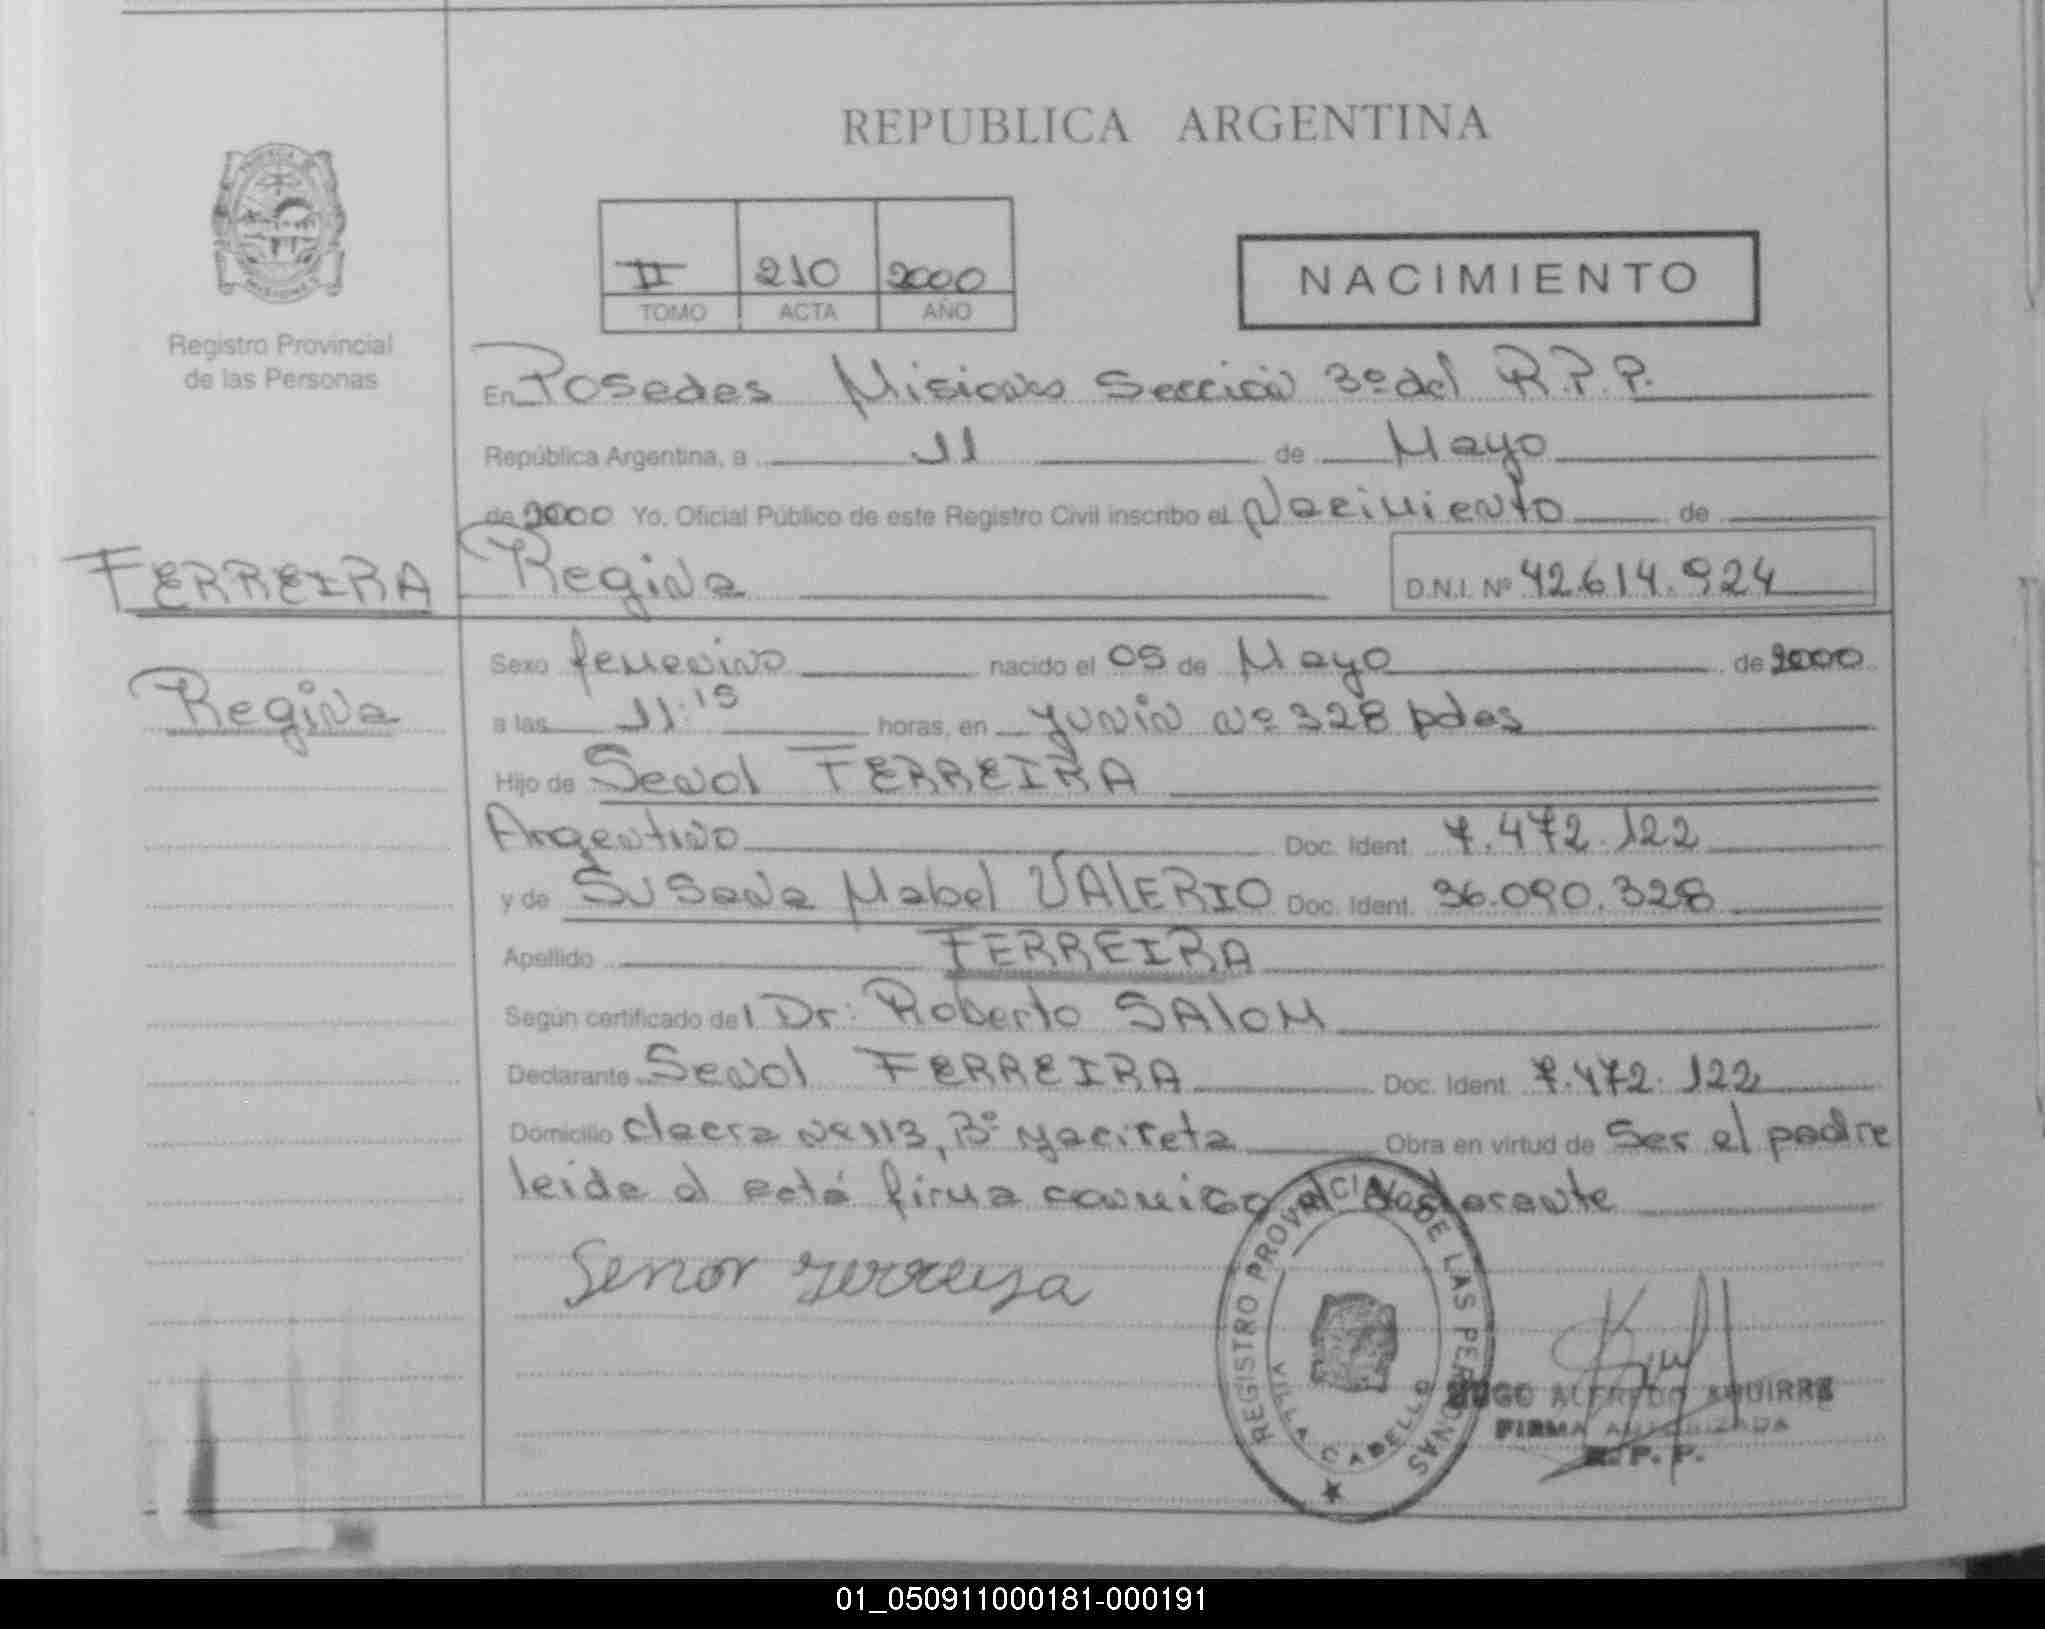 REPUBLICA ARGENTINA
II 210 2000
TOMO ACTA AÑO
NACIMIENTO
Registro Provincial
de las Personas
En Posadas Misiones Sección 3º del R.P.P.
República Argentina, a 11 de Mayo
de 2000 Yo, Oficial Público de este Registro Civil inscribo el Nacimiento de
FERREIRA Regina D.N.I. Nº 42.614.924
Sexo femenino nacido el 05 de Mayo de 2000
Regina
a las 11:15 horas, en Junín Nº 328 pdas
Hijo de Senol FERREIRA
Argentino Doc. Ident. 7.472.122
y de Susana Mabel VALERIO Doc. Ident. 36.090.328
Apellido FERREIRA
Según certificado del Dr: Roberto SALOM
Declarante Senol FERREIRA Doc. Ident. 7.472.122
Domicilio Chacra Nº 113, Bº Yacireta Obra en virtud de Ser el padre
leida el acta firma conmigo el declarante
Senor
REGISTRO PROVINCIAL DE LAS PERSONAS
VILLA CABELLO
HUGO ALFREDO AGUIRRE
FIRMA AUTORIZADA
R. P. P.
01_050911000181-000191